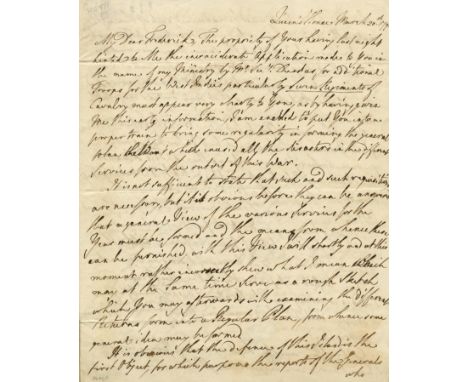 Queens House March 20th 17
My Dear Frederick, The propriety of Your having last night
hinted to Me the inconsiderate Application made to You in
the name of my Ministry by Mr. Sec. Dundas, for additional
Troops for the West Indies particularly seven Regiments of
Cavalry must appear very clearly to You, as by having given
Me this early information, I am enabled to put You in some
proper train to bring some regularity in forming the general
plan, the want of which caused all the disasters in the different
Services from the outset of this War.
It is not sufficient to state that such and such requisitions
are necessary, but it is obvious before they can be answered
that a general View of the various Services for the
Year must be formed and the means from whence these
can be furnished, with this View I will shortly and at this
moment rather incorrectly shew what I mean which
may at the same time serve as a rough Sketch
which You may afterwards with examining the different
Returns form into a Regular Plan, from whence some
general idea may be formed
It is obvious that the defence of this Island is the
first Object for which purpose the reports of the Generals
who